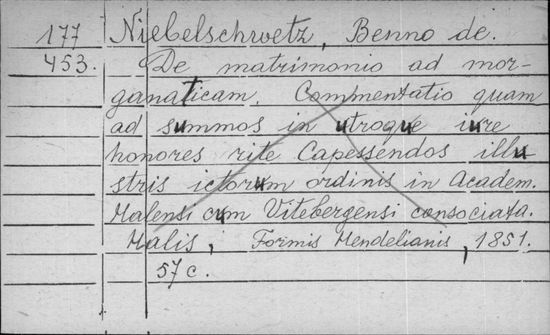 177 Niebelschwetz, Benno de.
453. De matrimonio ad mor-
ganaticam. Commentatio quam
ad summos in utroque iure
honores rite Capessendos illu
stris ictorum ordinis in Academ.
Halensi cum Vitebergensi consociata.
Halis, Formis Hendelianis, 1851.
57 c.